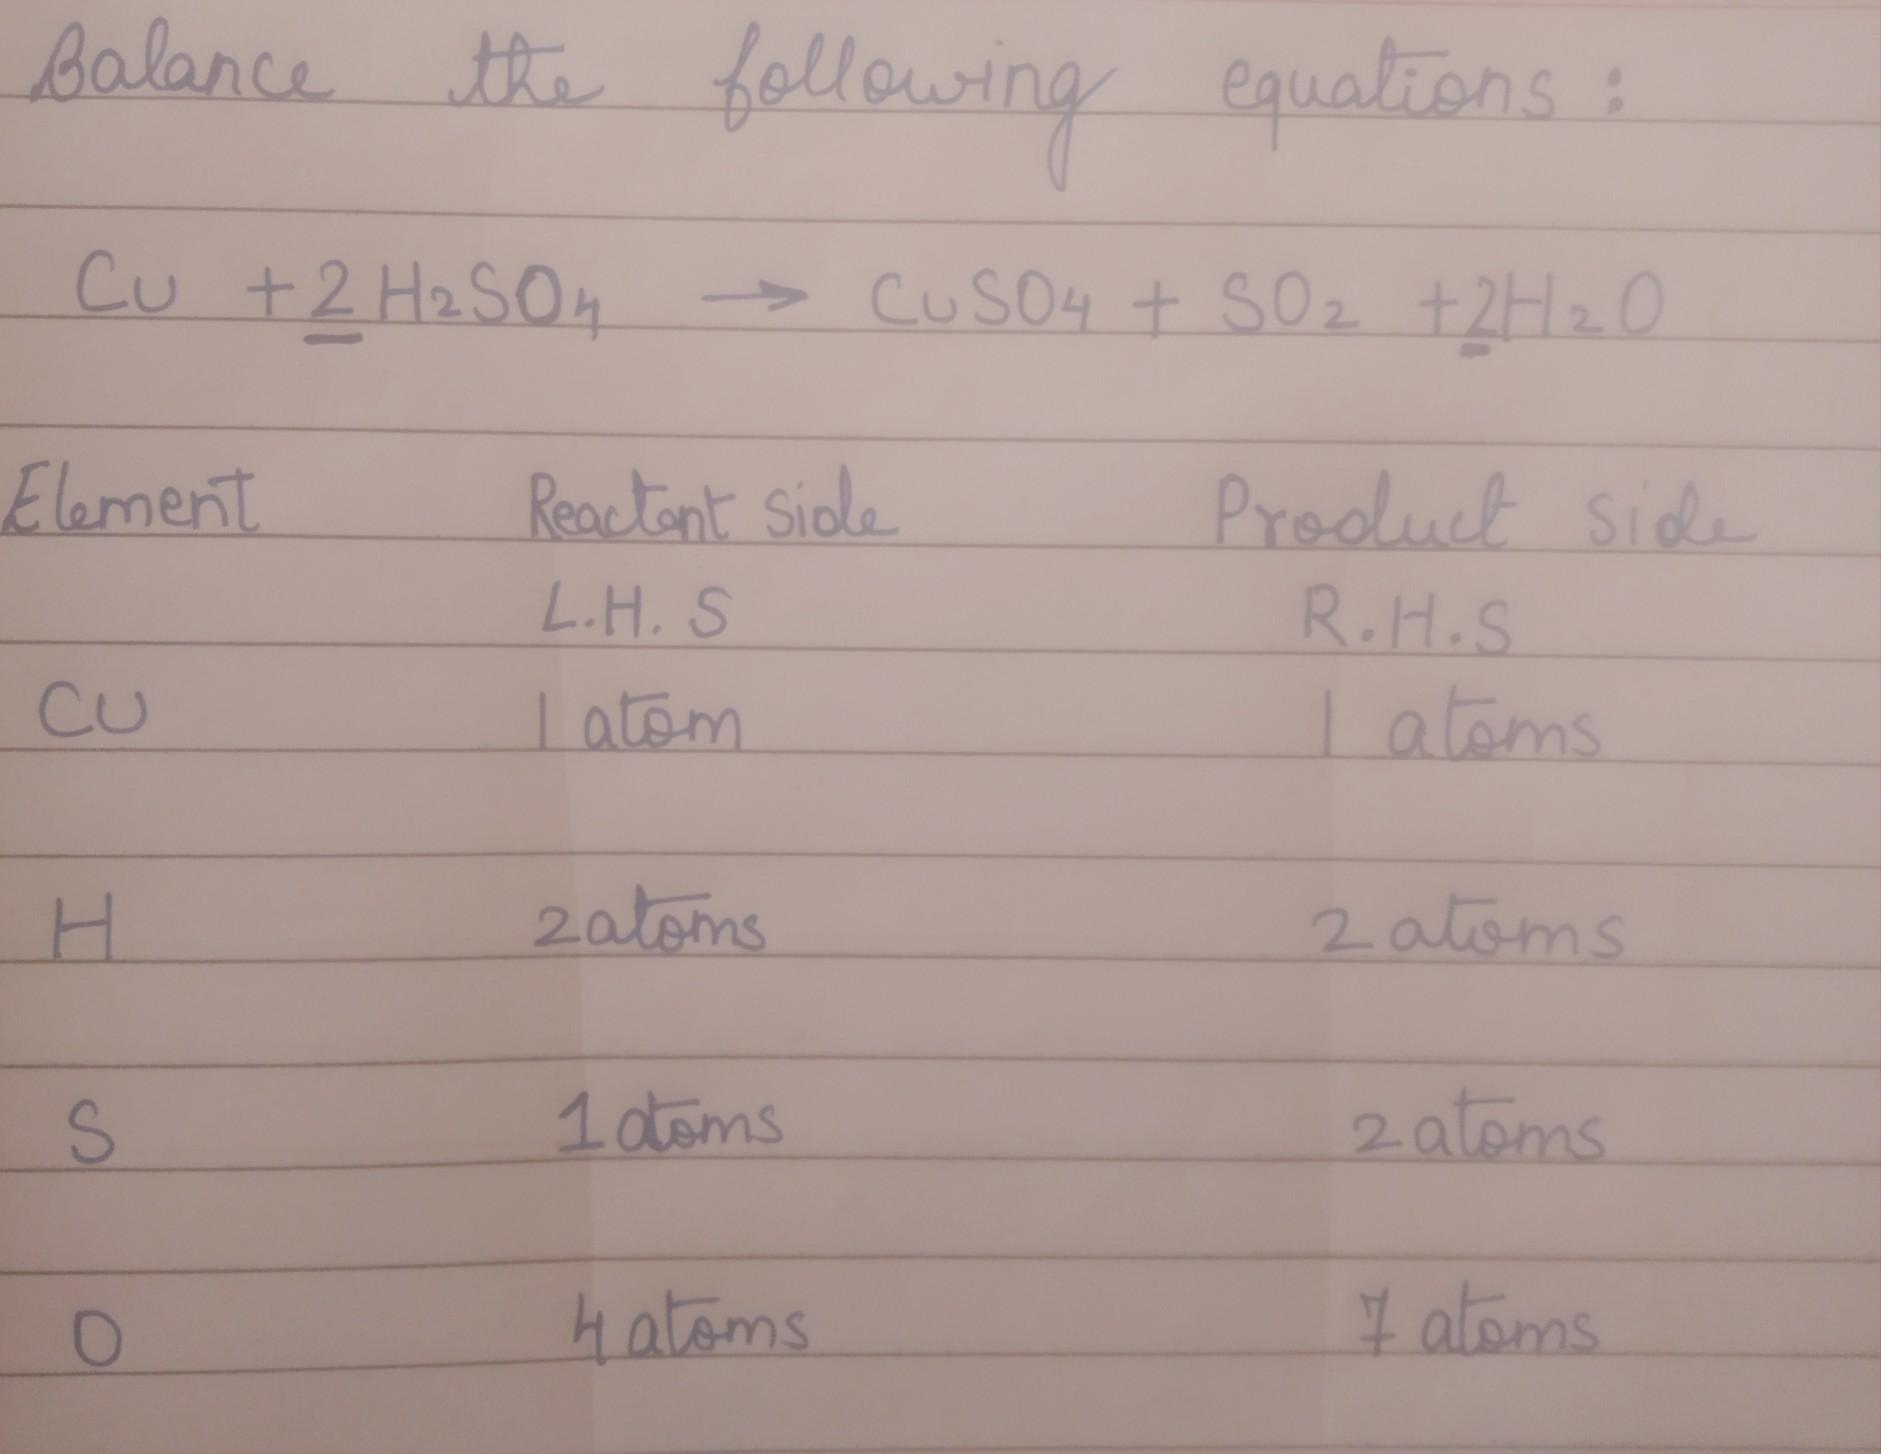 Balance the following equations :
Cu + 2 H2SO4 → CuSO4 + SO2 + 2H2O
Element Reactant side Product side
L.H.S R.H.S
Cu 1 atom 1 atoms
H 2 atoms 2 atoms
S 1 atoms 2 atoms
O 4 atoms 7 atoms